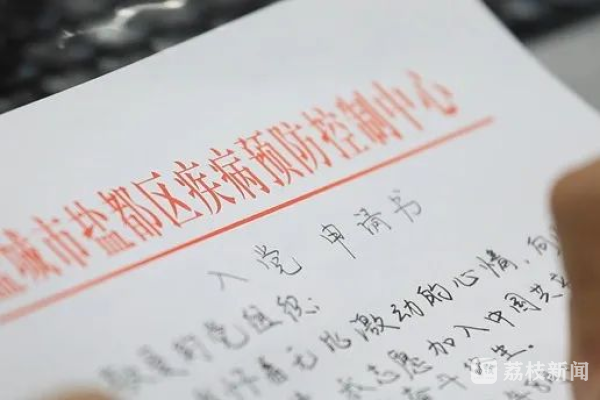 盐城市盐都区疾病预防控制中心
入党 申请书
敬爱的党组织:
怀着无比激动的心情,向
我志愿加入中国共产
奋斗终生.
荔枝新闻